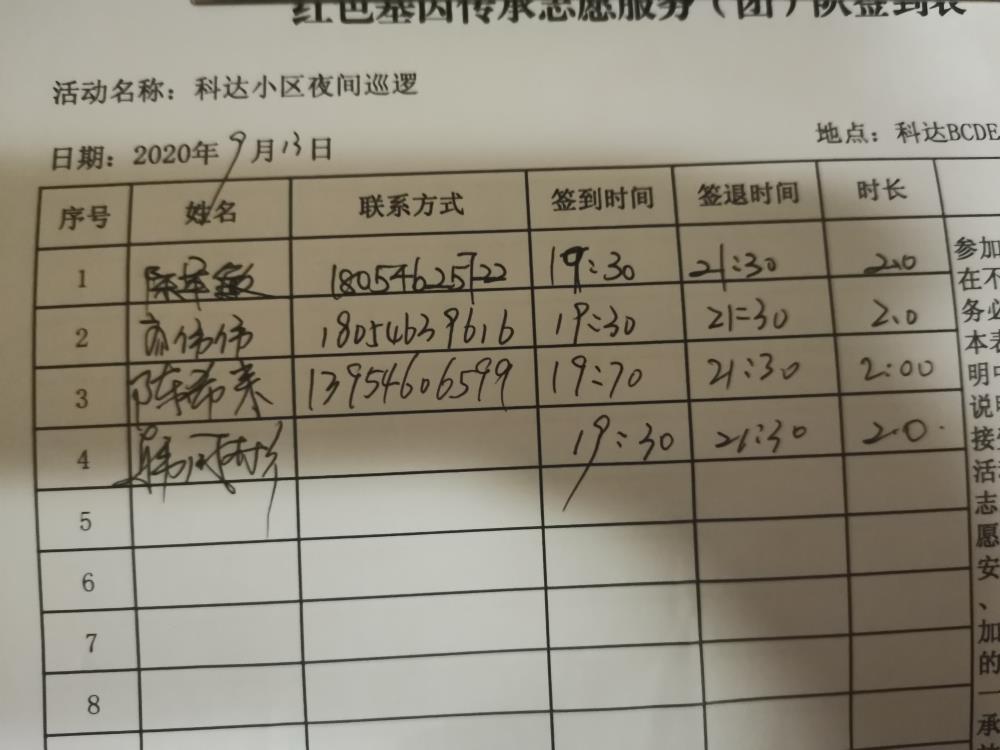 红色基因传承志愿服务（团）队签到表
活动名称：科达小区夜间巡逻
日期：2020年9月13日
地点：科达BCDE
序号 姓名 联系方式 签到时间 签退时间 时长
1 18054625722 19:30 21:30 2.0
2 伟伟 18054639616 19:30 21:30 2.0
3 陈希来 13954606599 19:70 21:30 2:00
4 韩 19:30 21:30 2.0.
5
6
7
8
参加
在不
务必
本表
明中
说明
接受
活动
志
愿
安
、
加
的
一
承